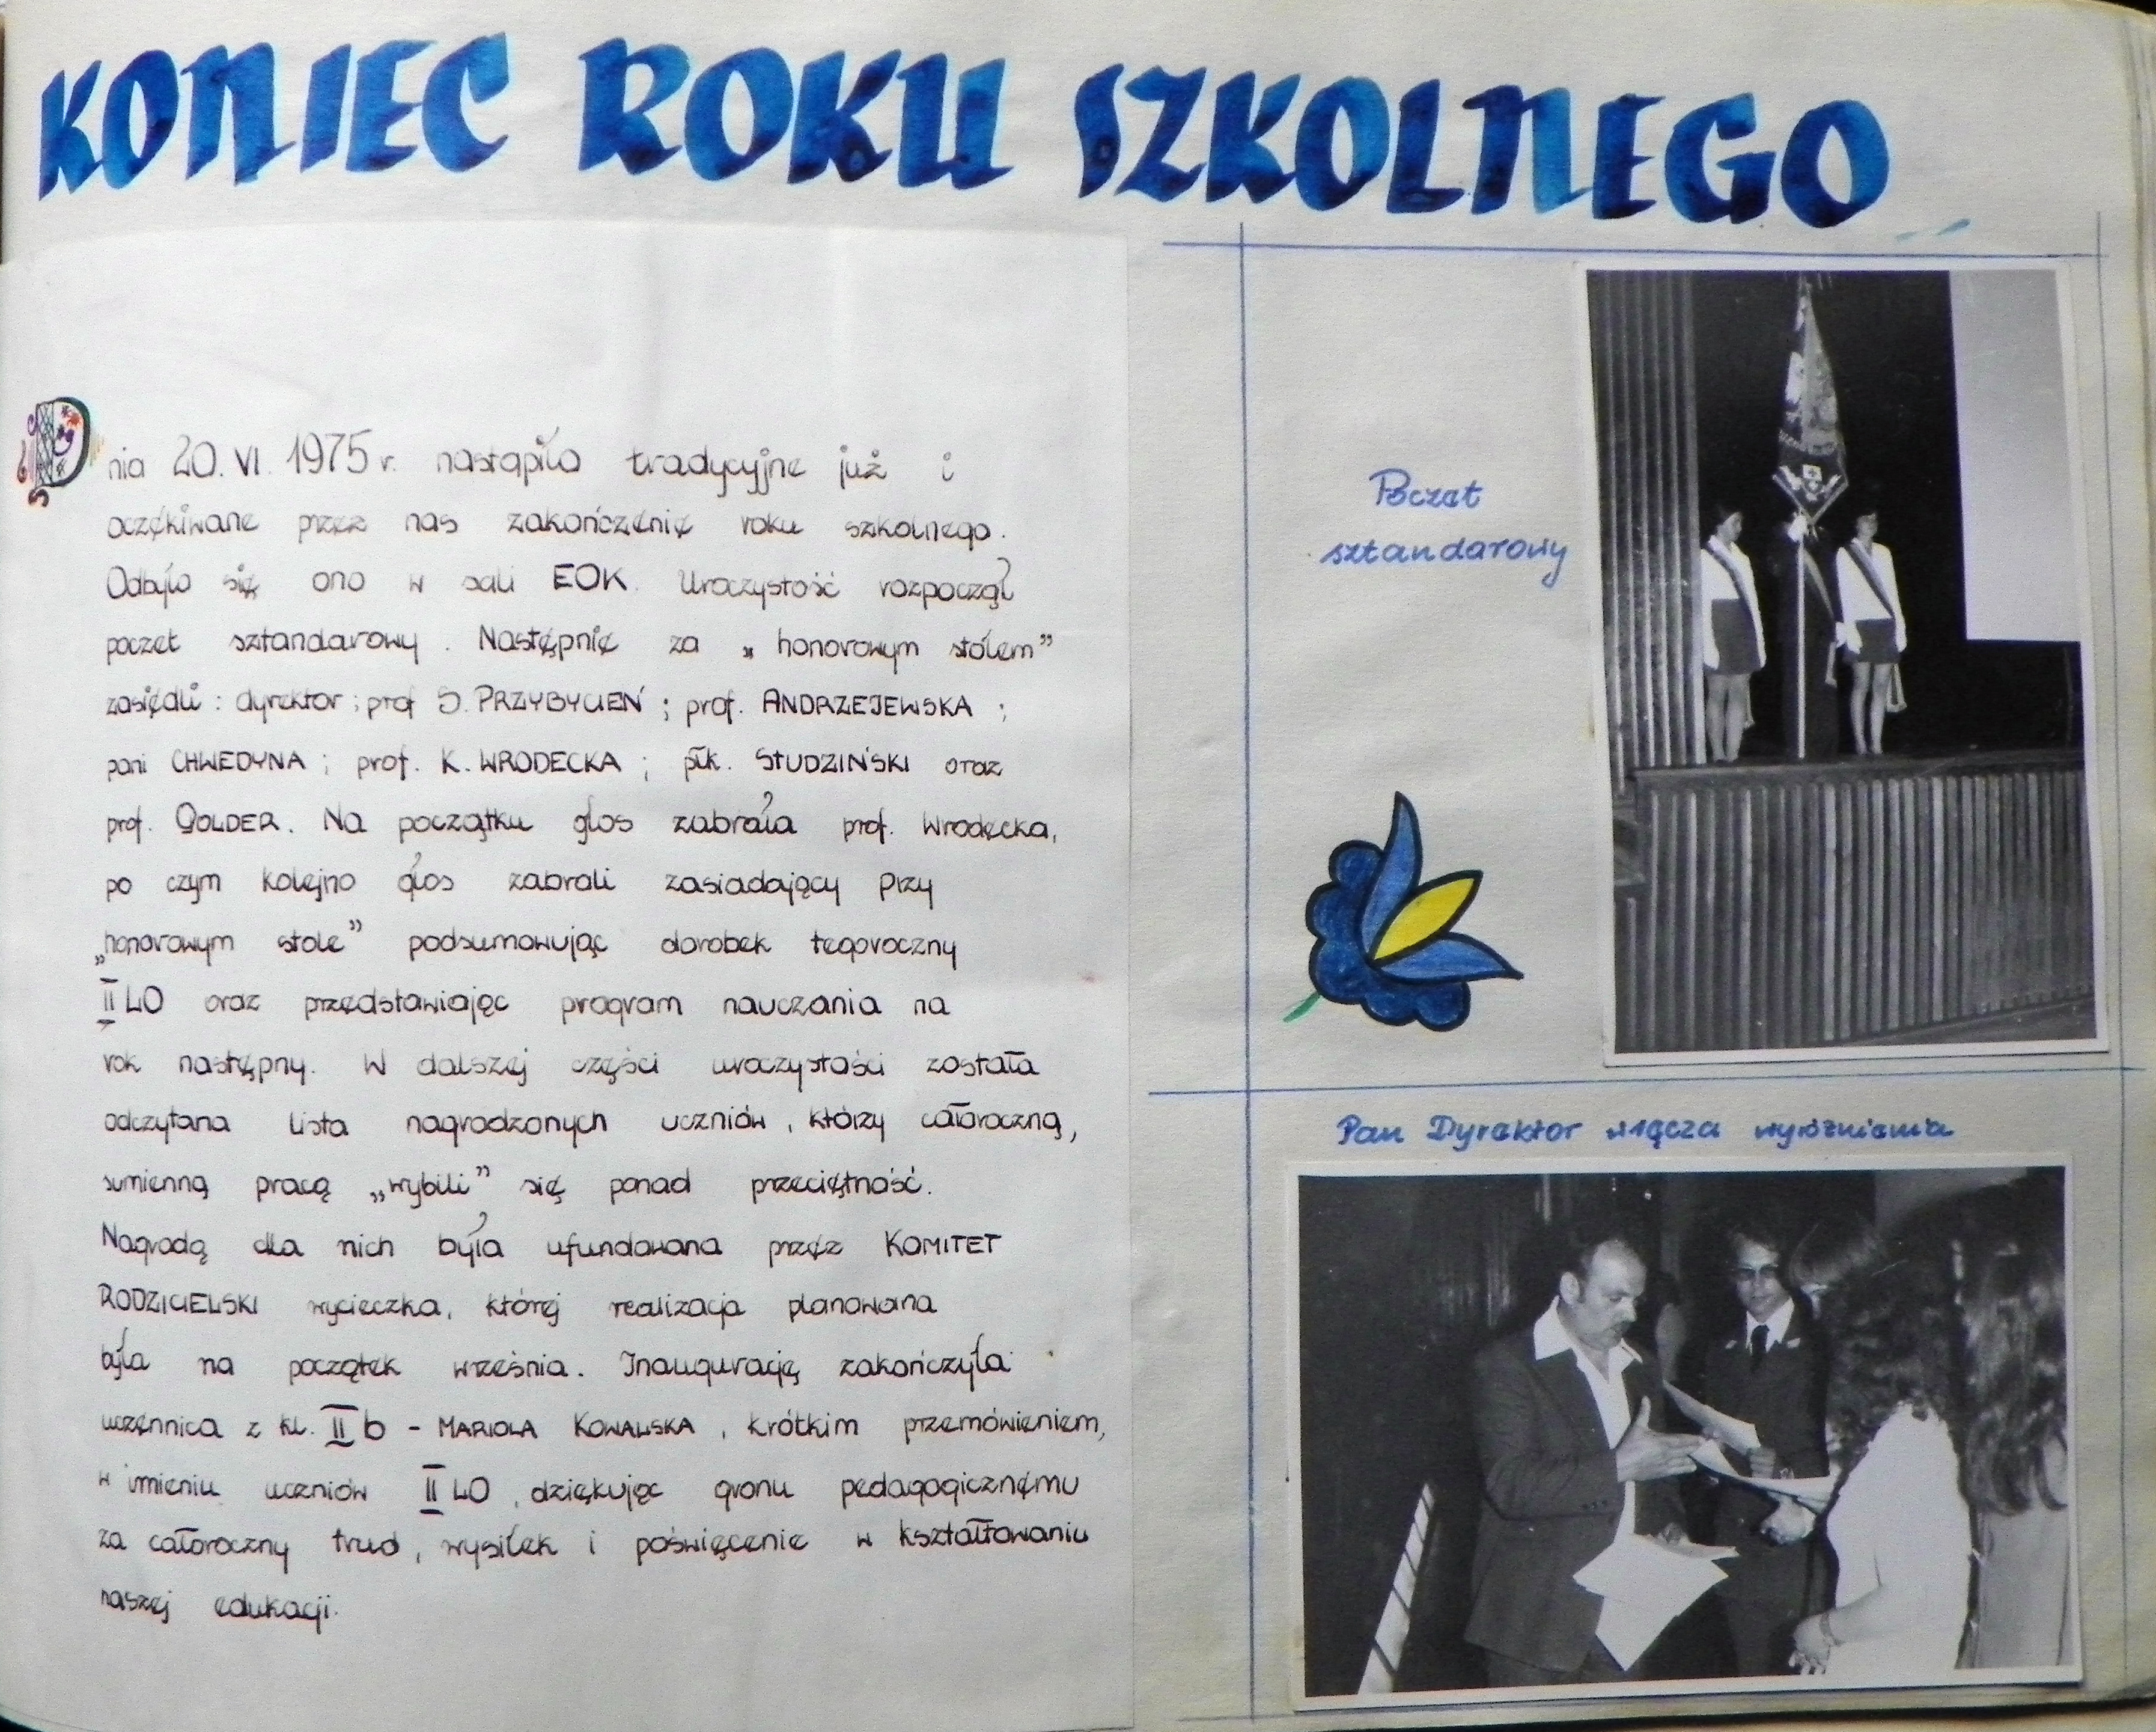 KONIEC ROKU SZKOLNEGO
Dnia 20.VI.1975r. nastąpiło tradycyjne już i
oczekiwane przez nas zakończenie roku szkolnego.
Odbyło się ono w sali EOK. Uroczystość rozpoczął
poczet sztandarowy. Następnie za „honorowym stołem”
zasiedli: dyrektor; prof S. PRZYBYCIEŃ; prof. ANDRZEJEWSKA;
pani CHWEDYNA; prof. K. WRODECKA; płk. STUDZIŃSKI oraz
prof. GOLDER. Na początku głos zabrała prof. Wrodecka,
po czym kolejno głos zabrali zasiadający przy
„honorowym stole” podsumowując dorobek tegoroczny
II LO oraz przedstawiając program nauczania na
rok następny. W dalszej części uroczystości została
odczytana lista nagrodzonych uczniów, którzy całoroczną,
sumienną pracą „wybili” się ponad przeciętność.
Nagrodą dla nich była ufundowana przez KOMITET
RODZICIELSKI wycieczka, której realizacja planowana
była na początek września. Inaugurację zakończyła
uczennica z kl. II b - MARIOLA KOWALSKA, krótkim przemówieniem,
w imieniu uczniów II LO, dziękując gronu pedagogicznemu
za całoroczny trud, wysiłek i poświęcenie w kształtowaniu
naszej edukacji.
Poczet
sztandarowy
Pan Dyrektor wręcza wyróżnienia